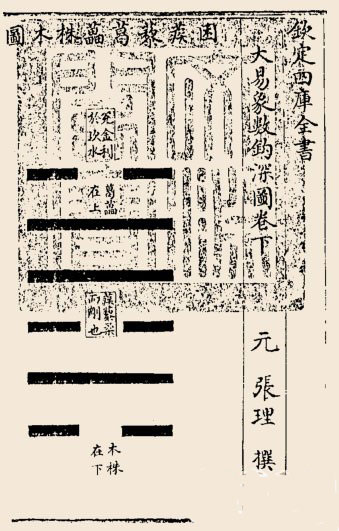 欽定四庫全書
大易象數鉤深圖卷下
元 張理 撰
困蒺藜葛藟株木圖
兌金利
於坎水
葛藟
在上
蒺藜柔
而剛也
木株
在下